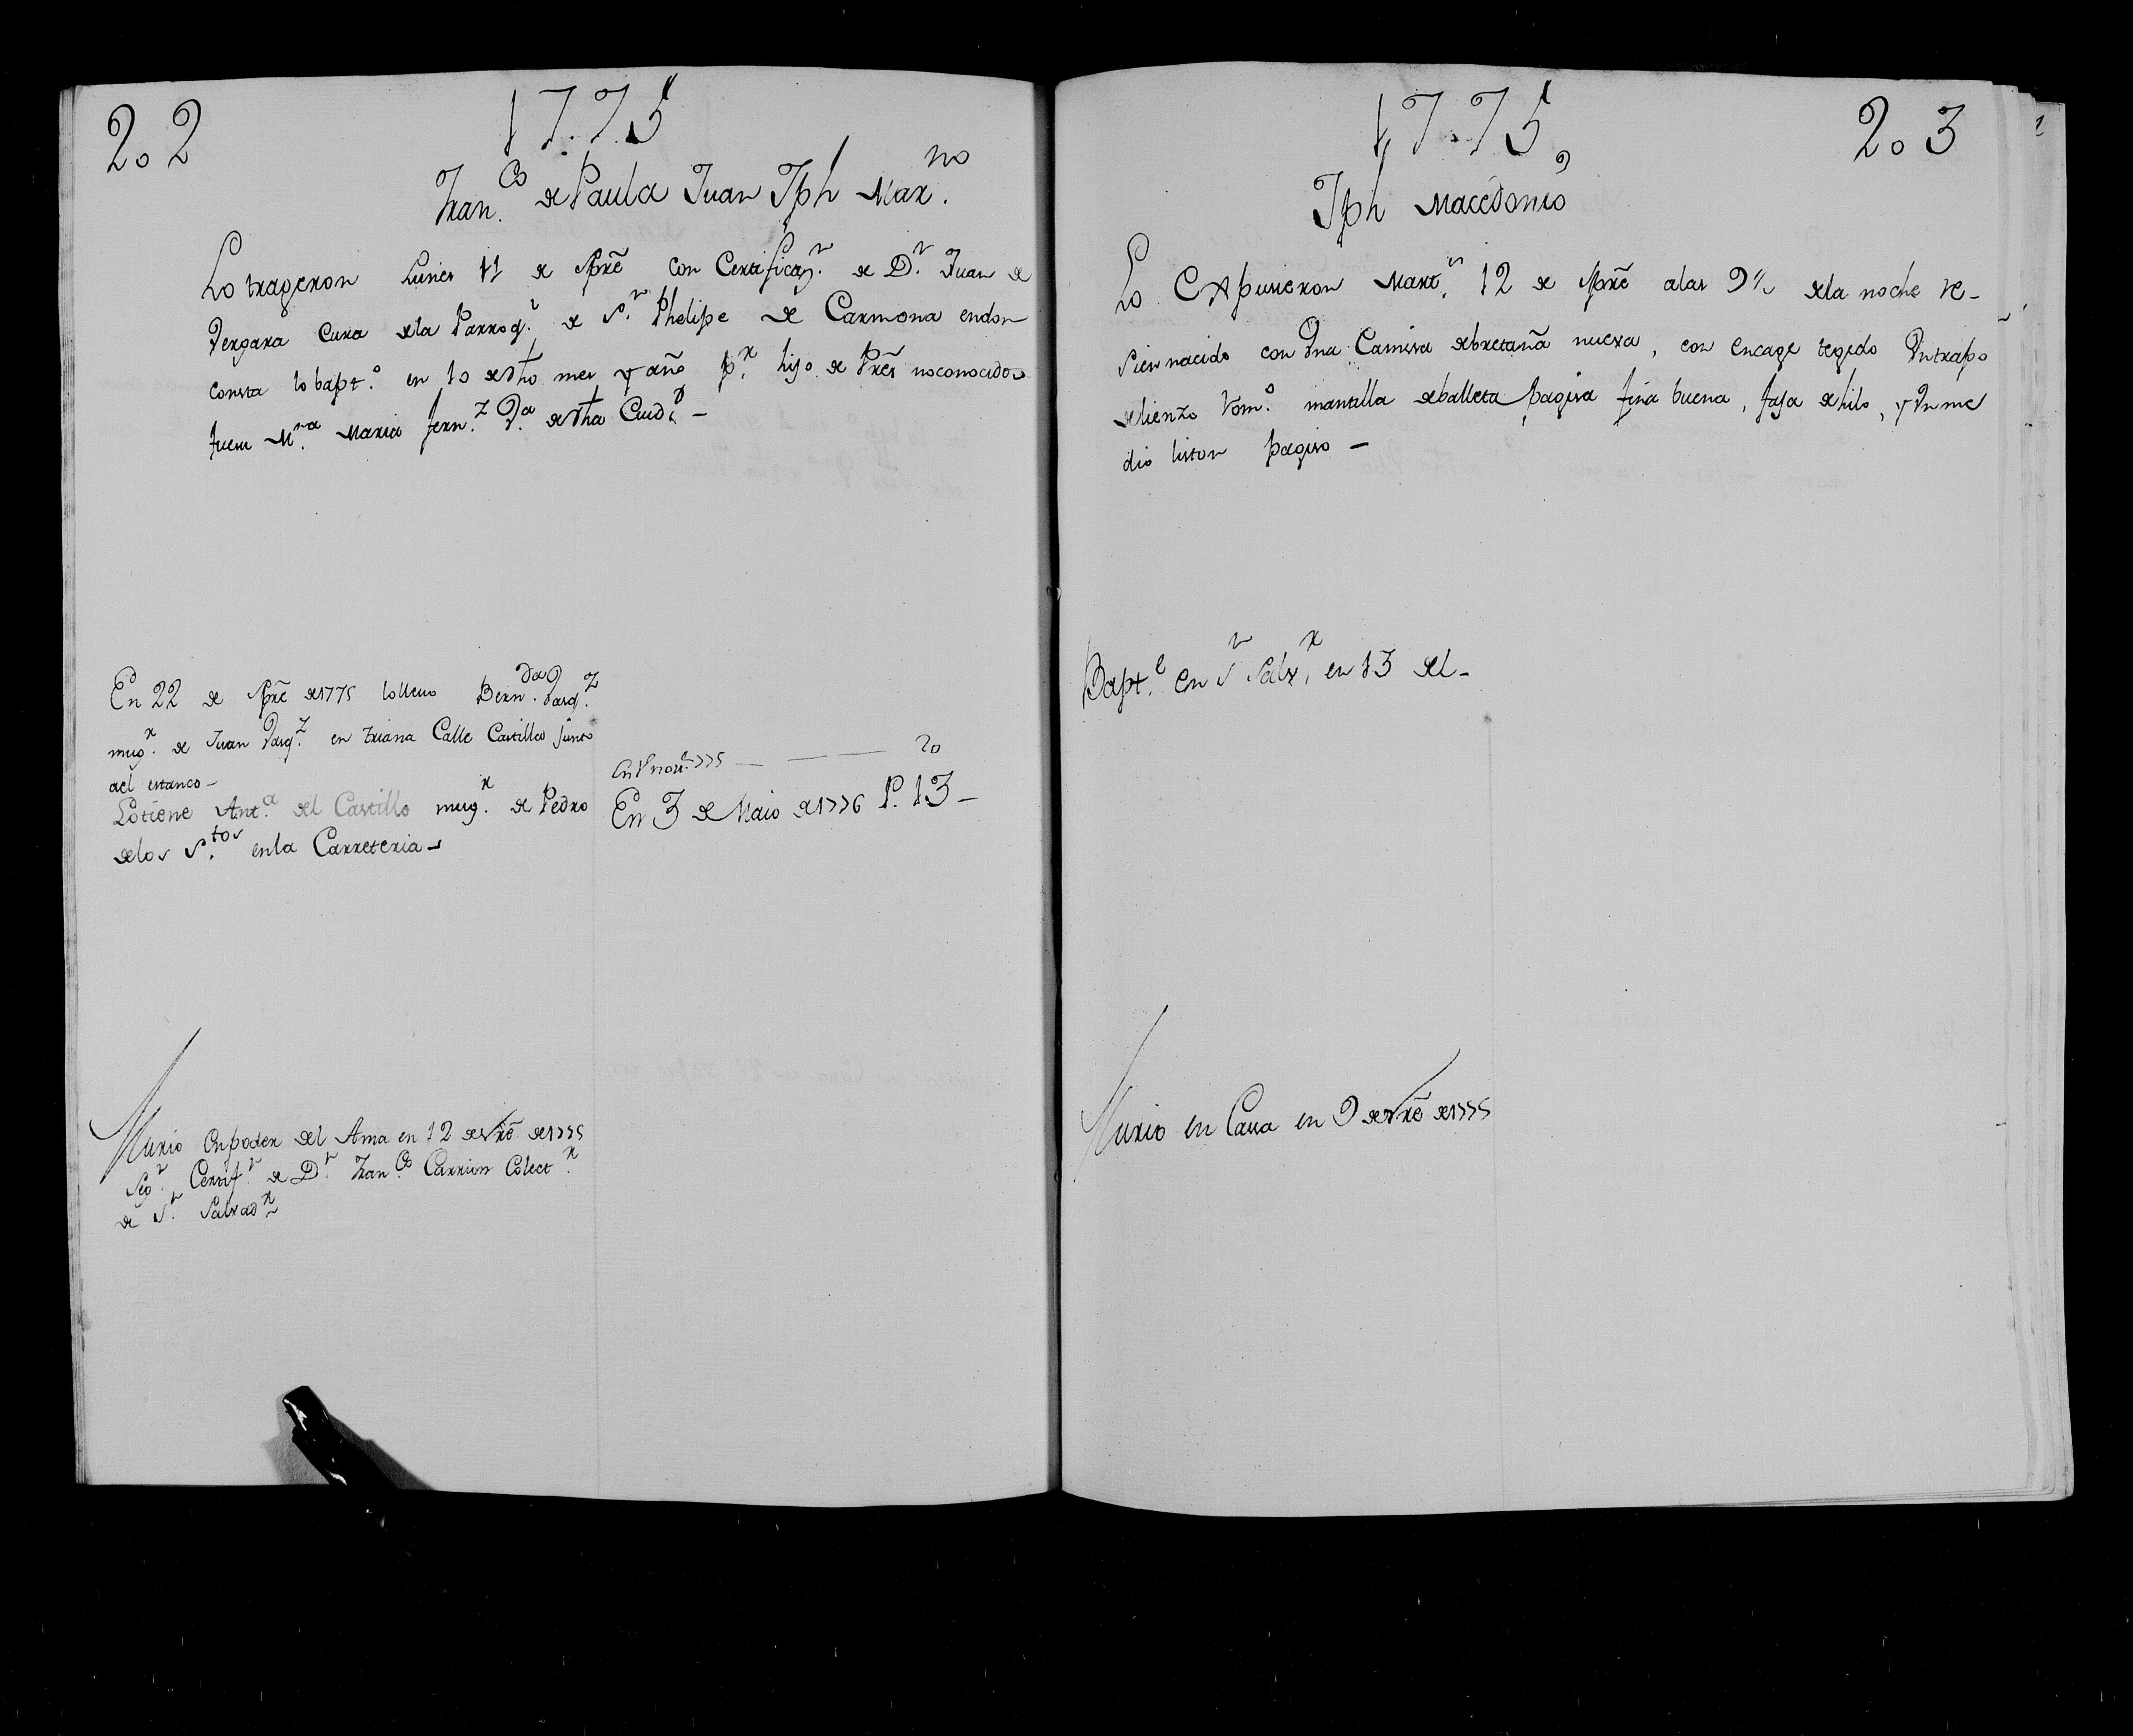 202
1775
Franco de Paula Juan Jph Marno
Lo trageron Lunes 11 de Spre con Certificazn de Dn Juan de
Vergara Cura dela Parroqa de Sn Phelipe de Carmona endon
consta lo bapto en 10 de dho mes y año pr hijo de Pres no conocidos
fue su Mna Maria Fernz Va de dha Ciudd –
En 22 de Spre de 1775 lo llevo Bernda Vasqz
mugr de Juan Vasqz en triana Calle Castilla junto
ael estanco –
Lo tiene Anta del Castillo mugr de Pedro
delos Stos enla Carreteria –
En 1º nove 775 — — 20
En 3 de Maio de 1776 P. 13 –
Murio en poder del Ama en 12 de re de 1775
Sgn Certifn de Dn Franco Carrion Colectr
de Sn Salvadr
1775
203
Jph Macedonio
Lo Expusieron Marts 12 de Spre alas 9½ dela noche re-
sien nacido con Una Camisa de bretaña nueva, con encage tegido Un trapo
de lienzo domo mantilla de balleta pagisa fina buena, faja de hilo, y Un me
dio liston pagiso –
Bapte en Sn Salvr, en 13 del –
Murio en Casa en 9 de re de 1775